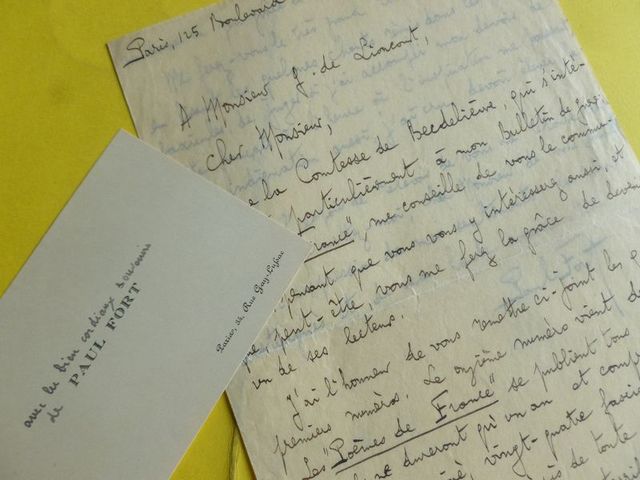 Paris, 125 Boulevard
A Monsieur J. de Lioncourt,
Cher Monsieur,
la Comtesse de Becdelièvre, qui s'inté-
particulièrement à mon bulletin de guerre
France", me conseille de vous le commu-
pensant que vous vous y intéresserez aussi, et
que, peut-être, vous me ferez la grâce de devenir
un de ses lecteurs.
J'ai l'honneur de vous remettre ci-joint les
premiers numéros. Le onzième numéro vient de
Les "Poèmes de France" se publient tous
ne dureront qu'un an et
vingt-quatre
de toute
avec les bien cordiaux souvenirs
de
PAUL FORT
Paris, 34, Rue Gay-Lussac